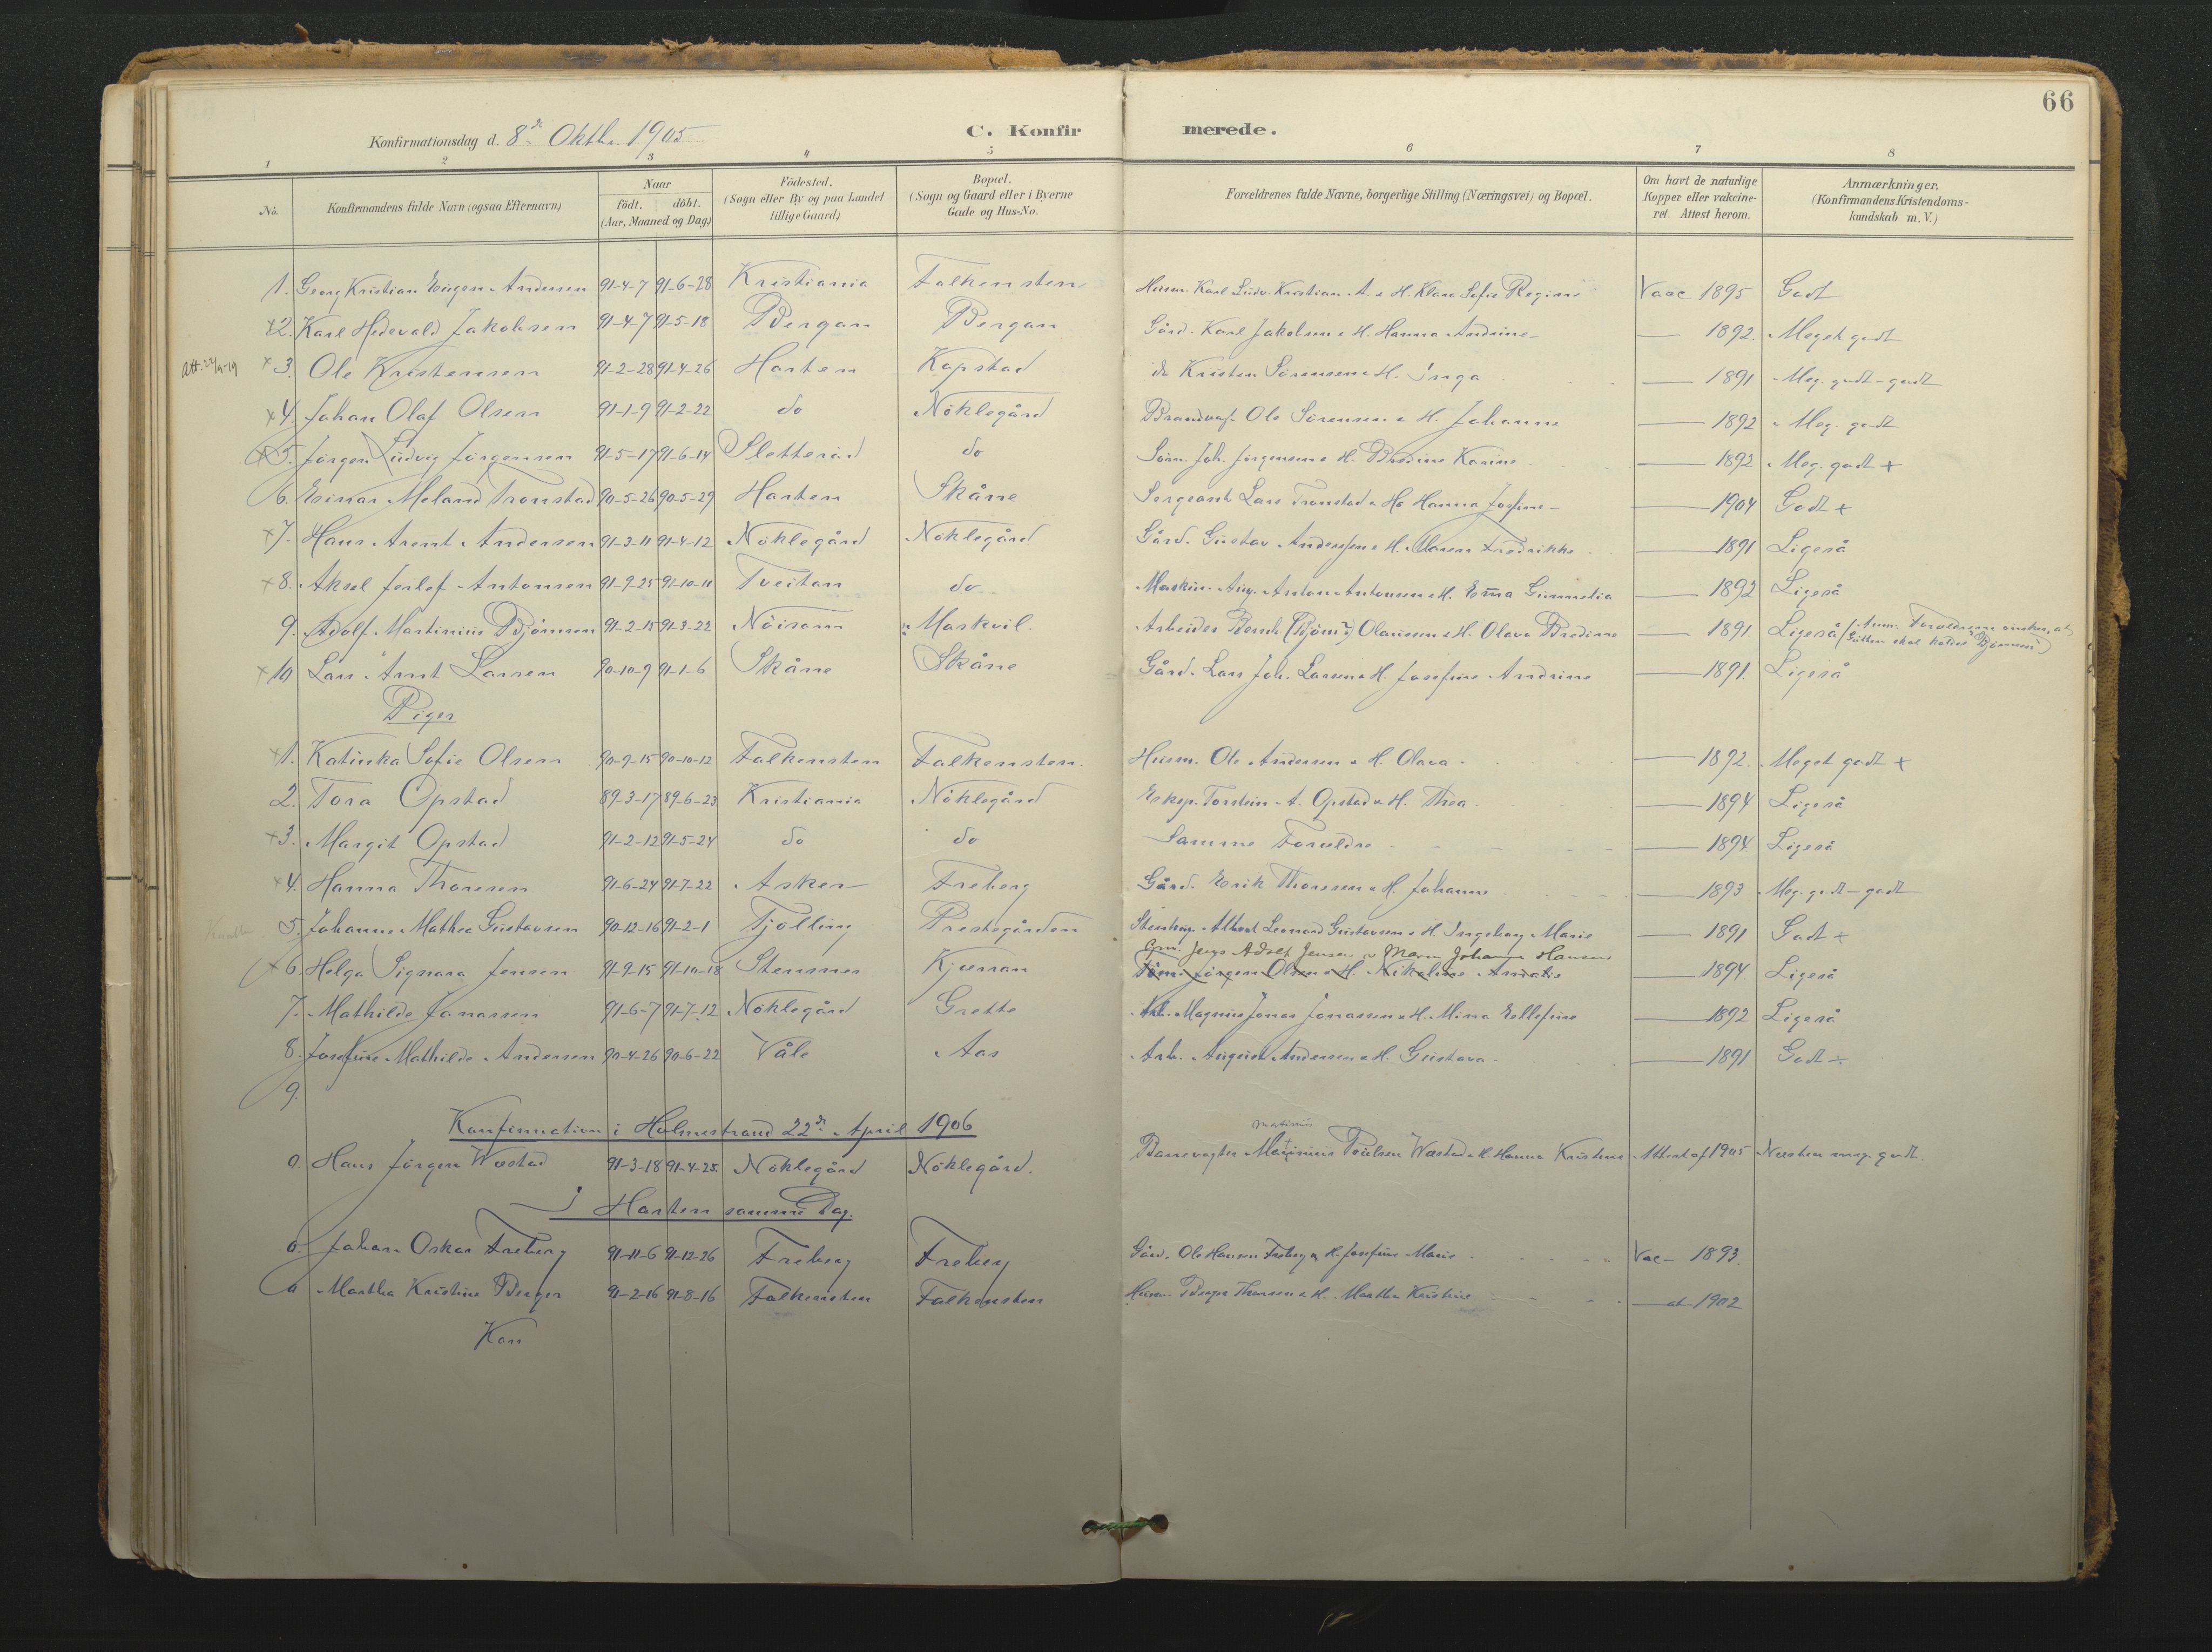 66
Konfirmationsdag d. 8de Oktbr. 1905
C. Konfirmerede.
1 2 3 4 5 6 7 8
No.
Konfirmandens fulde Navn (ogsaa Efternavn)
Naar
födt. döbt.
(Aar, Maaned og Dag)
Födested.
(Sogn eller By og paa Landet
tillige Gaard)
Bopæl.
(Sogn og Gaard eller i Byerne
Gade og Hus-No.
Forældrenes fulde Navne, borgerlige Stilling (Næringsvei) og Bopæl.
Om havt de naturlige
Kopper eller vakcine-
ret. Attest herom.
Anmærkninger.
(Konfirmandens Kristendoms-
kundskab m. V.)
1. Georg Kristian Eugen Andersen 91-4-7 91-6-28 Kristiania Falkensten Husm. Karl Ludv. Kristian A. & H. Klara Sofie Regine Vacc 1895 Godt
x2. Karl Hedevald Jakobsen 91-4-7 91-5-18 Bergan Bergan Gård. Karl Jakobsen & H. Hanna Andrine — 1892. Meget godt
x3. Ole Kristensen 91-2-28 91-4-26 Horten Kopstad do Kristen Sörensen & H. Inga — 1891 Meg. godt - godt
x4. Johan Olaf Olsen 91-1-9 91-2-22 do Nöklegård Ole Sörensen & H. Johanne — 1892 Meg. godt
x5. Jörgen Ludvig Jörgensen 91-5-17 91-6-14 Sletteröd do Söm. Joh. Jörgensen & H. Karine — 1892 Meg. godt +
6. Einar Meland Tronstad 90-5-26 90-5-29 Horten Skåne Sergeant Lars Tronstad & H. Hanna Josefine — 1904 Godt +
x7. Hans Arent Andersen 91-3-11 91-4-12 Nöklegård Nöklegård Gård. Gustav Anderssen & H. Maren Fredrikke — 1891 Ligeså
x8. Aksel Antonsen 91-9-25 91-10-11 Tveitan do Maskin. Aug. Anton Antonsen & H. Emma — 1892 Ligeså
9. Adolf Martinius Björnsen 91-2-15 91-3-22 Nöisom Maskvil. Arbeider Bernh. (Björn?) Olaussen & H. Olava Bredine — 1891 Ligeså (Anm. Forældrene önsker, at
Gutten skal kaldes "Björnsen")
x10 Lars Arnt Larsen 90-10-9 91-1-6 Skåne Skåne Gård. Lars Joh. Larsen & H. Josefine Andrine — 1891. Ligeså
Piger
x1. Katinka Sofie Olsen 90-9-15 90-10-12 Falkensten Falkensten. Husm. Ole Andersen & H. Olava — 1892. Meget godt +
2. Tora Opstad 89-3-17 89-6-23 Kristiania Nöklegård Torstein A. Opstad & H. Thea — 1894 Ligeså
x3. Margit Opstad 91-2-12 91-5-24 do do Samme Forældre — 1894 Ligeså
x4. Hanna Thoresen 91-6-24 91-7-22 Asker Freberg Gård. Erik Thoressen & H. Johanne — 1893 Meg. godt - godt
5. Johanne Mathea Gustavsen 90-12-16 91-2-1 Tjölling Prestegården Albert Leonard Gustavsen & H. Ingeborg Marie — 1891 Godt +
Jens Adolf Jensen & Maren Johanne Hansen
x6. Helga Signora Jensen 91-9-15 91-10-18 Stensnes Kjærran Jörgen Olsen & H. Nikoline — 1894. Ligeså
7. Mathilde Jonassen 91-6-7 91-7-12 Nöklegård Grette Arb. Magnus Jonas Jonassen & H. Mina Ellefine — 1892 Ligeså
8. Josefine Mathilde Andersen 90-4-26 90-6-22 Våle Aas Arb. August Andersen & H. Gustava — 1891 Godt ÷
9.
Konfirmation i Holmestrand 22de April 1906
Martinius
0. Hans Jörgen Wæstad 91-3-18 91-4-25 Nöklegård Nöklegård. Banevogter Poulsen Wæstad & H. Hanna Kristine Attest af 1905 Næsten meg. godt.
i Horten samme Dag.
0. Johan Oskar Freberg 91-11-6 91-12-26 Freberg Freberg Gård. Ole Hansen Freberg & H. Josefine Marie Vac - 1893.
0 Martha Kristine Berger 91-2-16 91-8-16 Falkensten Falkensten Husm. Berger Thorsen & H. Martha Kristine — at 1902
Kon